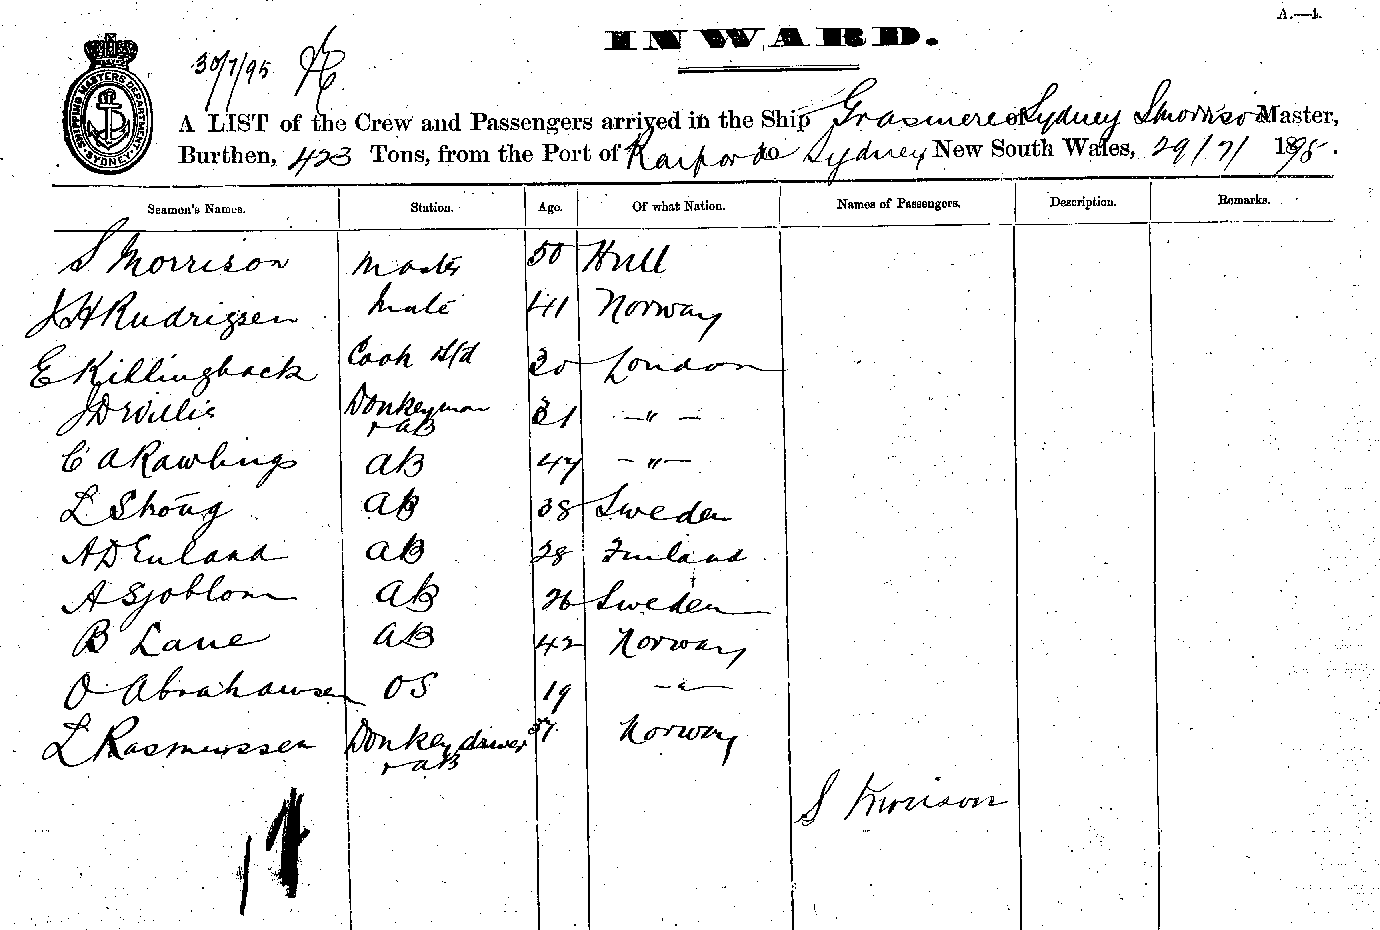 A.—4.
INWARD.
30/7/95
SHIPPING MASTERS DEPARTMENT SYDNEY
A LIST of the Crew and Passengers arrived in the Ship Grasmere of Sydney S Morrison Master,
Burthen, 423 Tons, from the Port of to Sydney New South Wales, 29/7/ 1895.
Seamen's Names. Station. Age. Of what Nation. Names of Passengers. Description. Remarks.
S Morrison Master 50 Hull
J H Rudrigsen Mate 41 Norway
E Killingback Cook Std 30 London
J D Willis Donkeyman + AB 31 — " —
C A Rawlings AB 47 — " —
L AB 38 Sweden
A D Enland AB 28 Finland
A Sjoblom AB 26 Sweden
B Lane AB 42 Norway
O Abrahamsen OS 19 — " —
L Rasmussen Donkey driver + AB 37 Norway
S Morrison